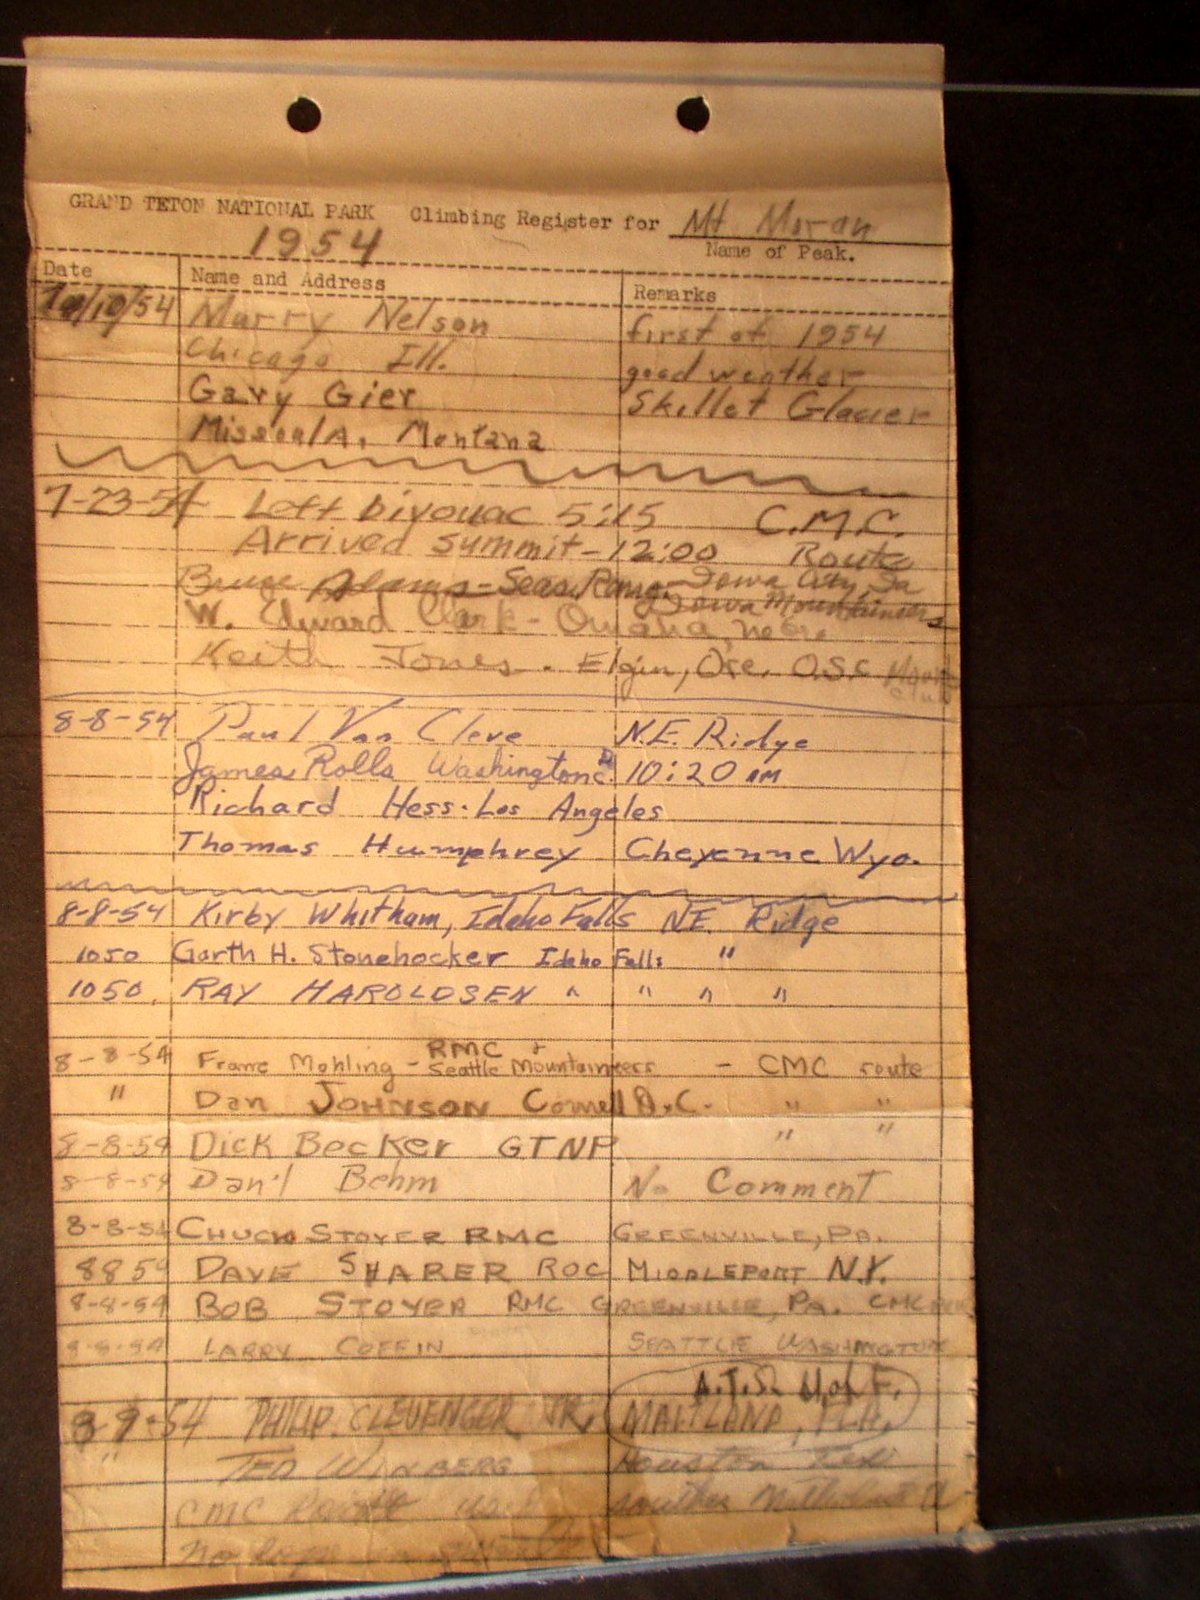 GRAND TETON NATIONAL PARK Climbing Register for Mt Moran
1954 Name of Peak.
Date Name and Address Remarks
/10/54 Marry Nelson first of 1954
Chicago Ill. good weather
Gary Gier Skillet Glacier
MissoulA, Montana
7-23-54 Left bivouac 5:15 C.M.C.
Arrived summit - 12:00 Route
Bruce Adams - Iowa City, Ia
Iowa Mountaineers
W. Edward Clark - Omaha, Nebr.
Keith Jones - Elgin, Ore. O.S.C
8-8-54 Paul Van Cleve N.E. Ridge
James Rolls Washington D.C. 10:20 AM
Richard Hess - Los Angeles
Thomas Humphrey Cheyenne Wyo.
8-8-54 Kirby Whitham, Idaho Falls NE. Ridge
1050 Garth H. Stonehocker Idaho Falls "
1050, RAY HAROLDSEN " " " "
8-8-54 Franc Mohling - RMC + Seattle Mountaineers - CMC route
" Dan JOHNSON Cornell O.C. " "
8-8-54 Dick Becker GTNP " "
8-8-54 Dan'l Behm No Comment
8-8-54 CHUCK STOYER RMC GREENVILLE, PA.
8 8 54 DAVE SHARER ROC MIDDLEPORT N.Y.
8-8-54 BOB STOYER RMC GREENVILLE, PA. CMC
8-8-54 LARRY COFFIN SEATTLE WASHINGTON
A.T.Ω U. of F.
8 9-54 PHILIP CLEVENGER JR. MAITLAND, FLA.
" TED WINBERG Houston Tex
CMC
No